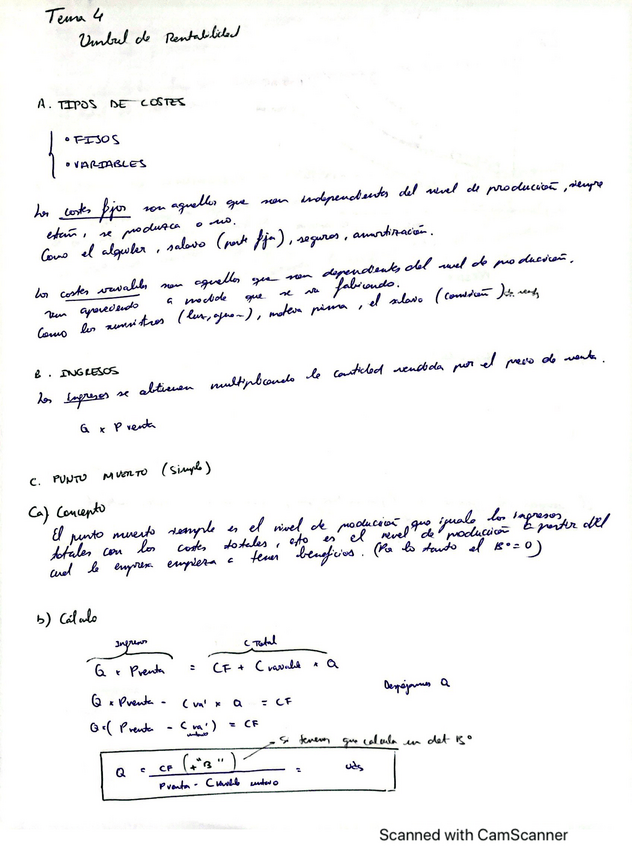 Tema 4
Umbral de Rentabilidad
A. TIPOS DE COSTES
• FIJOS
• VARIABLES
Los costes fijos son aquellos que son independientes del nivel de producción, siempre
están, se produzca o no.
Como el alquiler, salario (parte fija), seguros, amortización.
Los costes variables son aquellos que son dependientes del nivel de producción.
van apareciendo a medida que se va fabricando.
Como los suministros (luz, agua...), materia prima, el salario (comisión)
B. INGRESOS
Los ingresos se obtienen multiplicando la cantidad vendida por el precio de venta.
Q x P venta
C. PUNTO MUERTO (simple)
Ca) Concepto
El punto muerto simple es el nivel de producción que iguala los ingresos
totales con los costes totales, esto es el nivel de producción a partir del
cual la empresa empieza a tener beneficios. (Por lo tanto el Bº = 0)
b) Cálculo
Ingresos C Total
Q x Pventa = CF + Cvariable x Q
Despejamos Q
Q x Pventa - Cva' x Q = CF
Q x (Pventa - Cva') = CF
Si tenemos que calcula un det Bº
Q = CF (+"B") = uds
Pventa - Cvariable unitario
Scanned with CamScanner